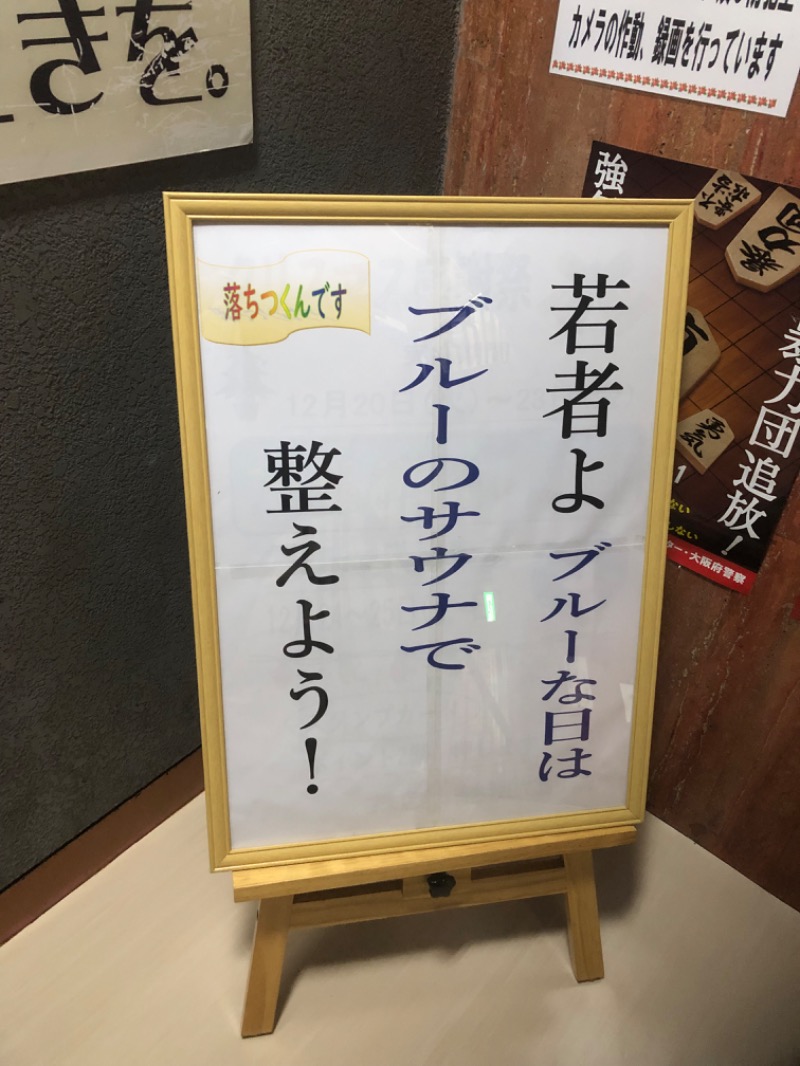 きちを。
カメラの作動、録画を行っています
落ちつくんです
若者よ ブルーな日は
ブルーのサウナで
整えよう！
強
暴力団追放！
勇気
ター・大阪府警察